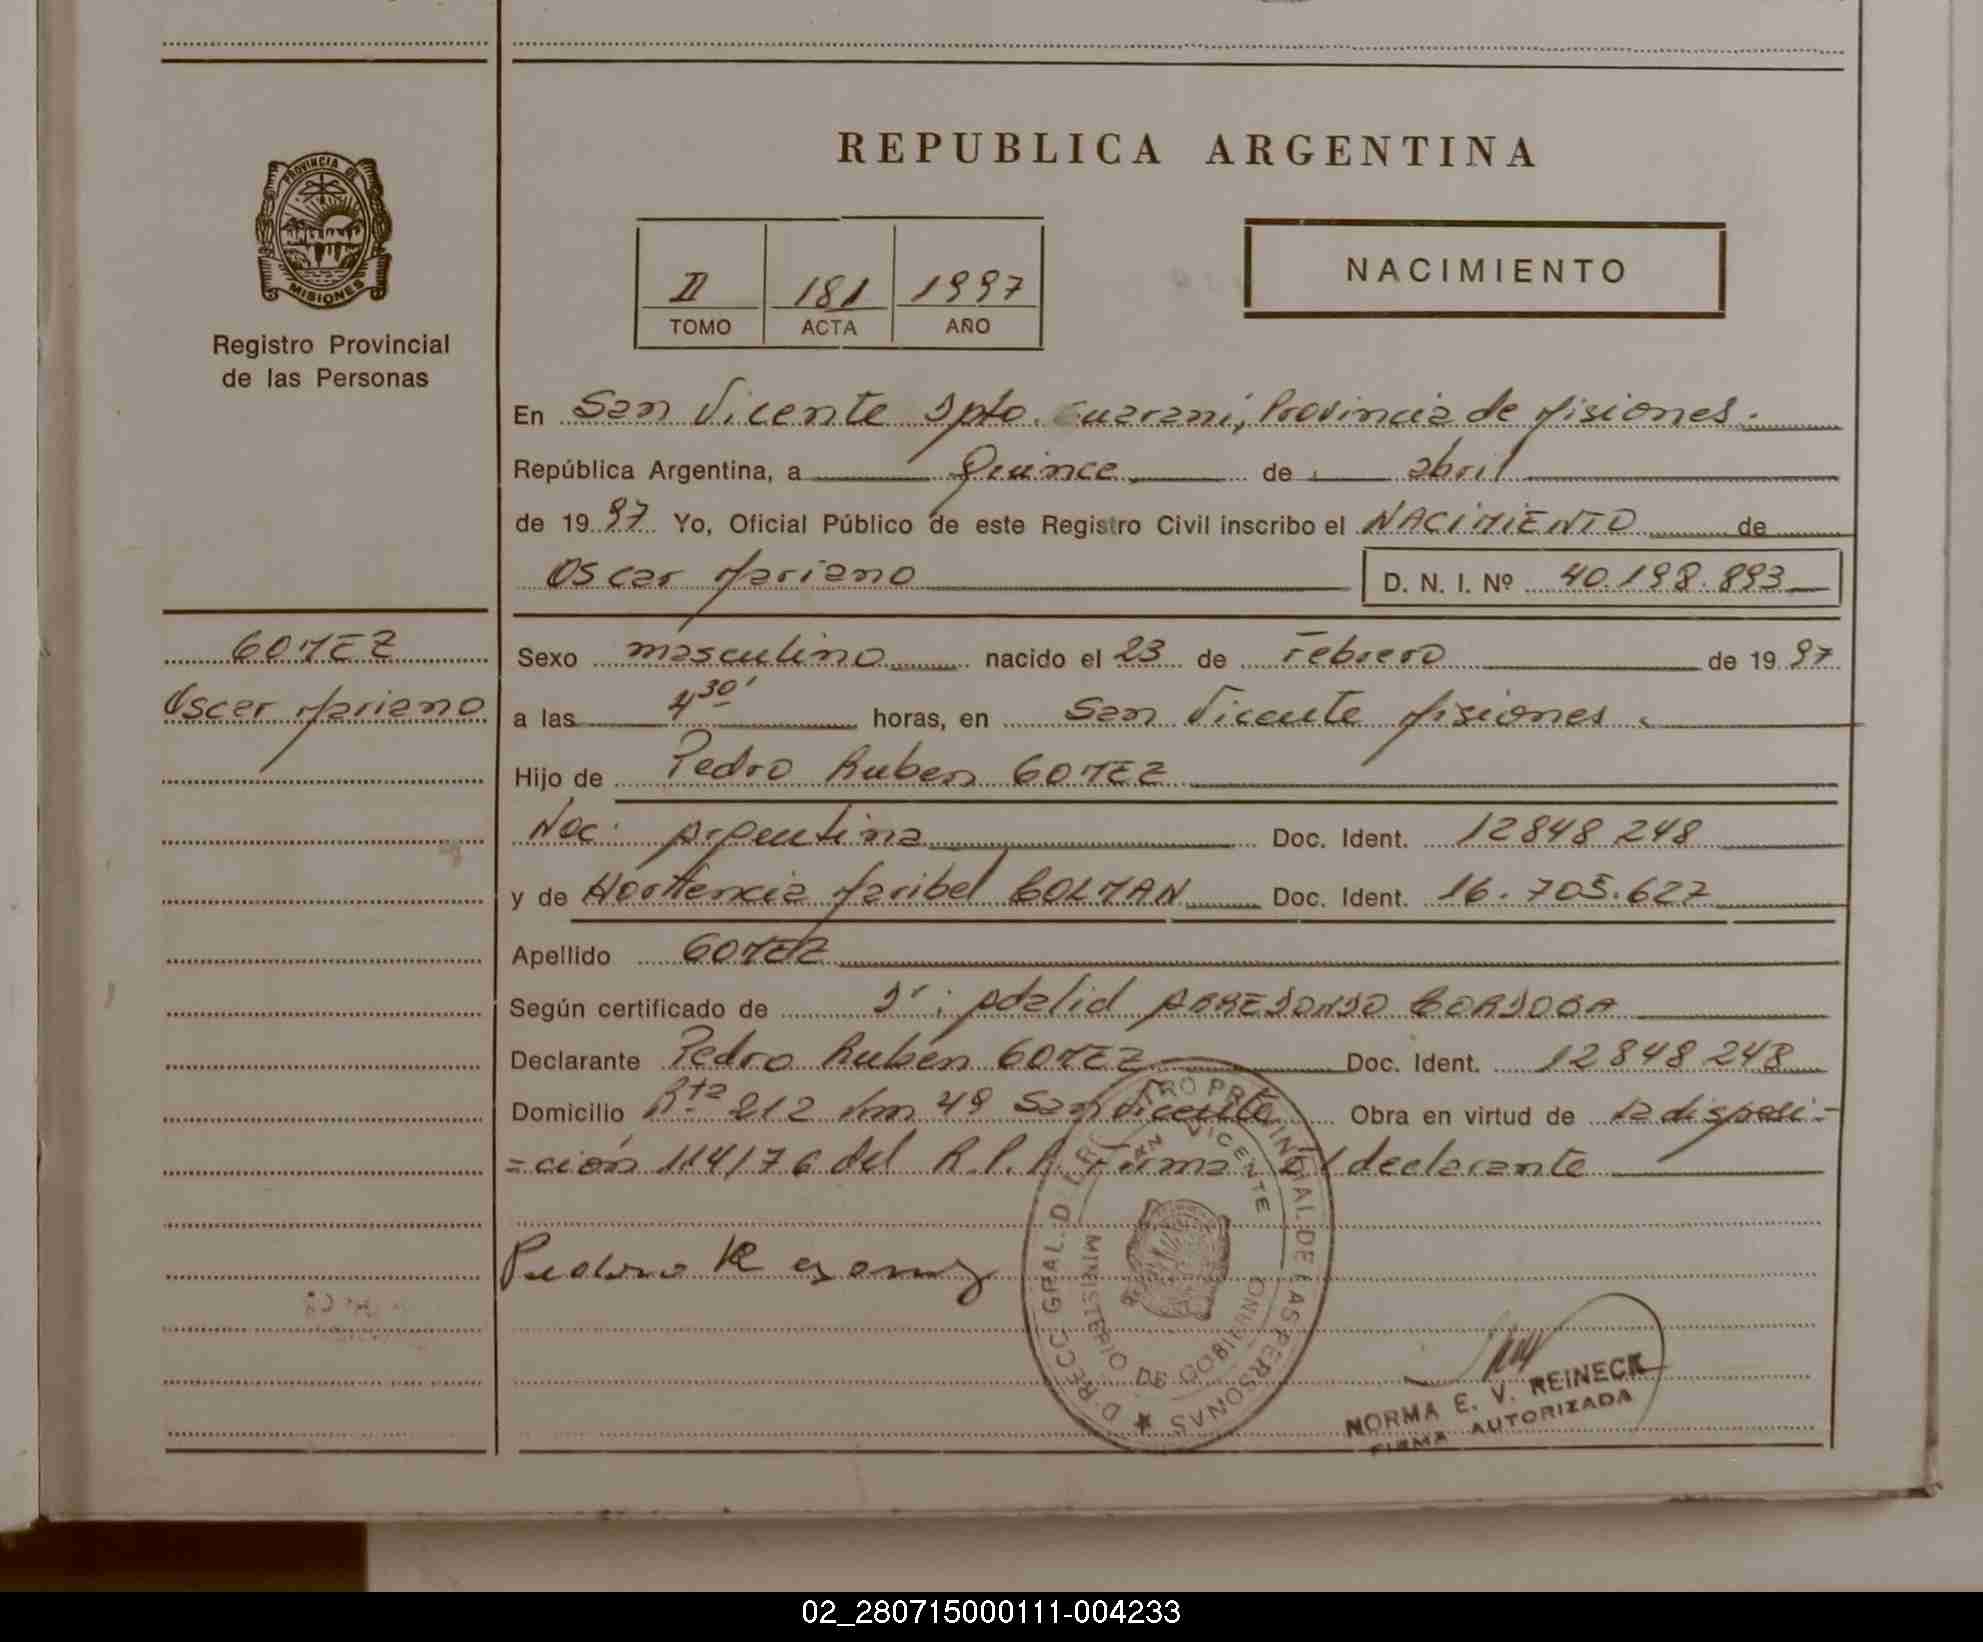 REPUBLICA ARGENTINA
PROVINCIA DE
MISIONES
Registro Provincial
de las Personas
II 181 1997
TOMO ACTA AÑO
NACIMIENTO
En San Vicente Dpto. Guaraní, Provincia de Misiones.
República Argentina, a Quince de abril
de 1997 Yo, Oficial Público de este Registro Civil inscribo el NACIMIENTO de
Oscar Mariano D. N. I. Nº 40.198.893
GOMEZ
Oscar Mariano
Sexo masculino nacido el 23 de Febrero de 1997
a las 4 30' horas, en San Vicente Misiones.
Hijo de Pedro Ruben GOMEZ
Nac: Argentina Doc. Ident. 12848248
y de Hortencia Maribel GOLMAN Doc. Ident. 16.705.627
Apellido GOMEZ
Según certificado de Dr: Adalid ARREDONDO CORDOBA
Declarante Pedro Rubén GOMEZ Doc. Ident. 12848248
Domicilio Rta 212 km 49 San Vicente Obra en virtud de la disposi-
-ción 114/76 del R.P.P. Firma el declarante
Pedro R Gomez
DIRECC. GRAL. DEL REGISTRO PROVINCIAL DE LAS PERSONAS
SAN VICENTE
MINISTERIO DE GOBIERNO
NORMA E. V. REINECK
FIRMA AUTORIZADA
02_280715000111-004233